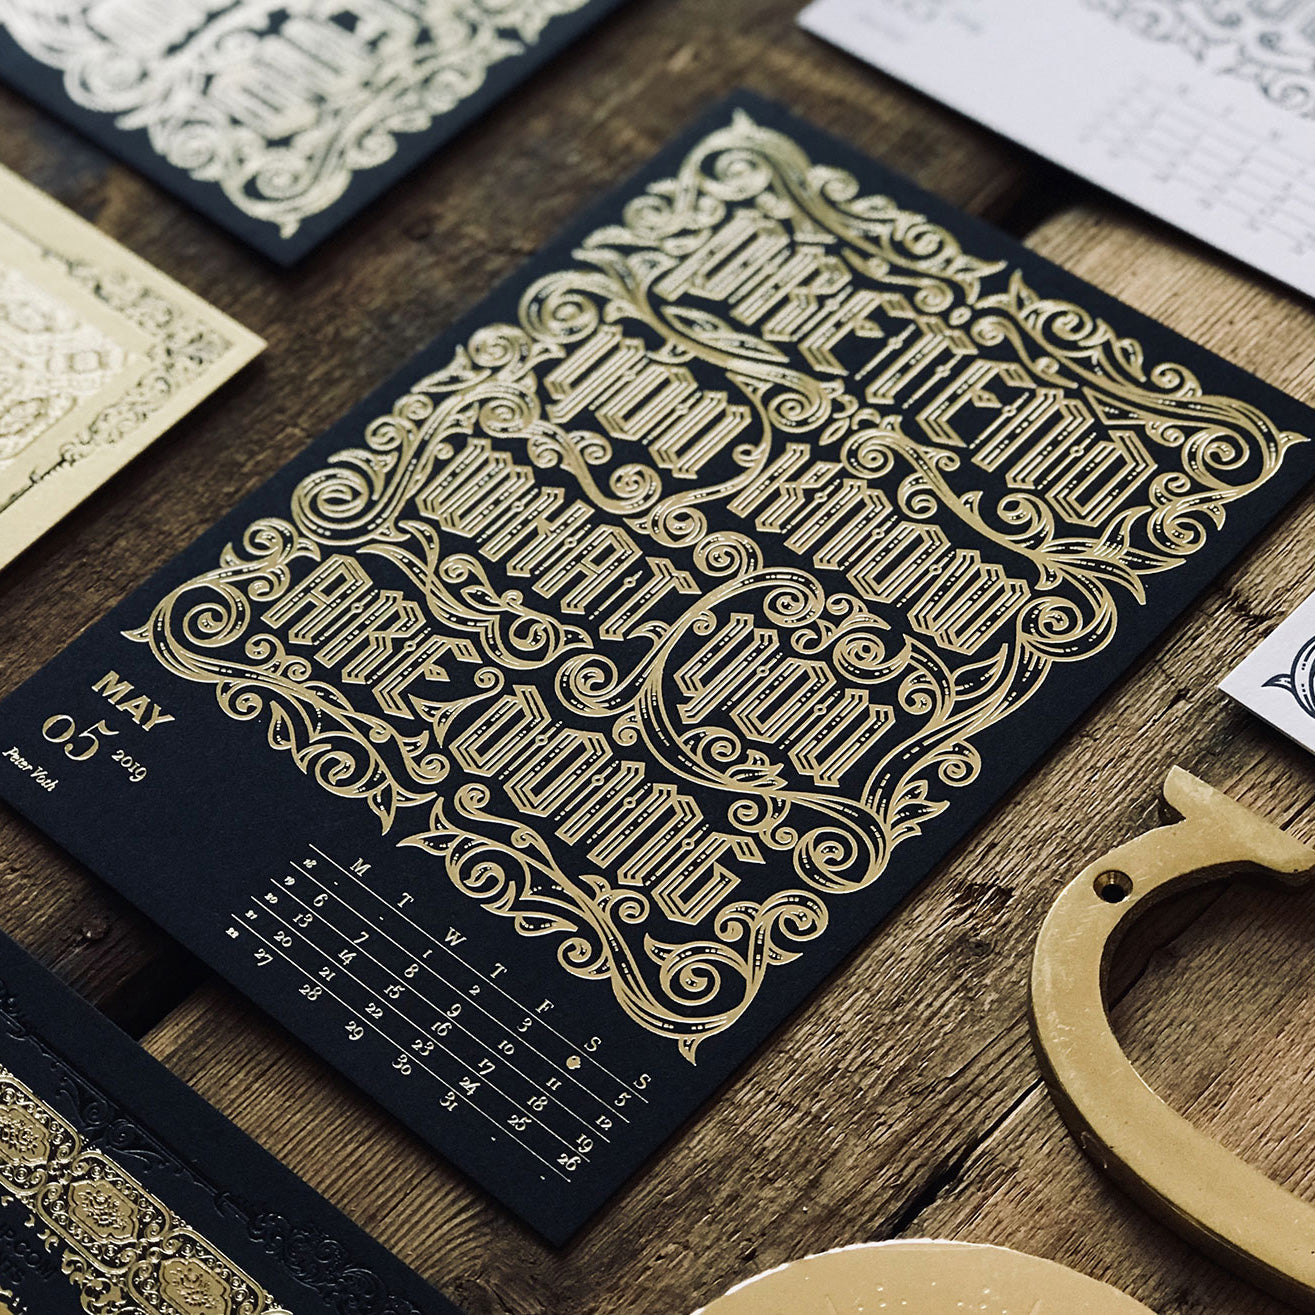 PRETEND
YOU KNOW
WHAT YOU
ARE DOING
MAY
05 2019
Peter Voth
M T W T F S S
18 - - 1 2 3 5
19 6 7 8 9 10 11 12
20 13 14 15 16 17 18 19
21 20 21 22 23 24 25 26
22 27 28 29 30 31 - -